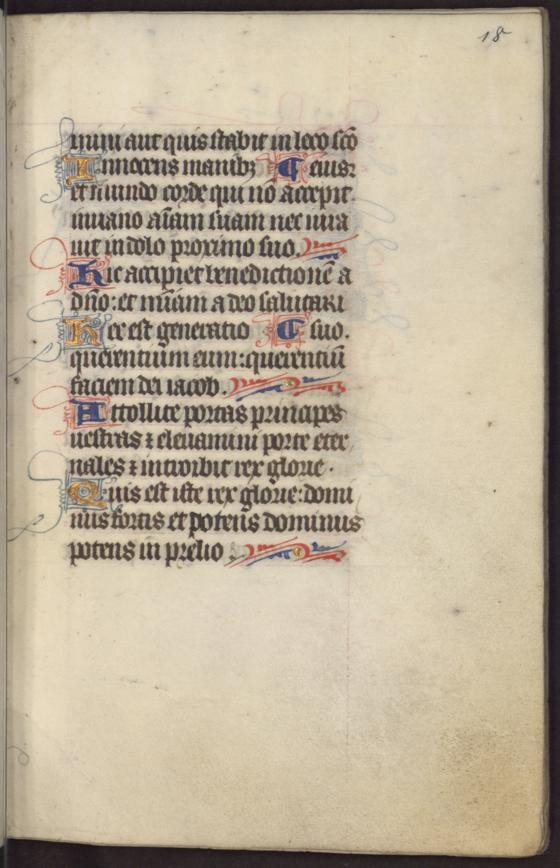 18
mini aut quis stabit in loco scō
Innocens manibꝫ ₵ eius
et mundo corde qui nō accepit
in uano aīam suam nec iura
uit in dolo proximo suo.
Hic accipiet benedictionē a
dño: et mīam a deo salutari
Hec est generatio ₵ suo.
querentium eum: querentiū
faciem dei iacob.
Attollite portas principes
uestras ⁊ eleuamini porte eter
nales ⁊ introibit rex glorie.
Quis est iste rex glorie: domi
nus fortis et potens dominus
potens in prelio.